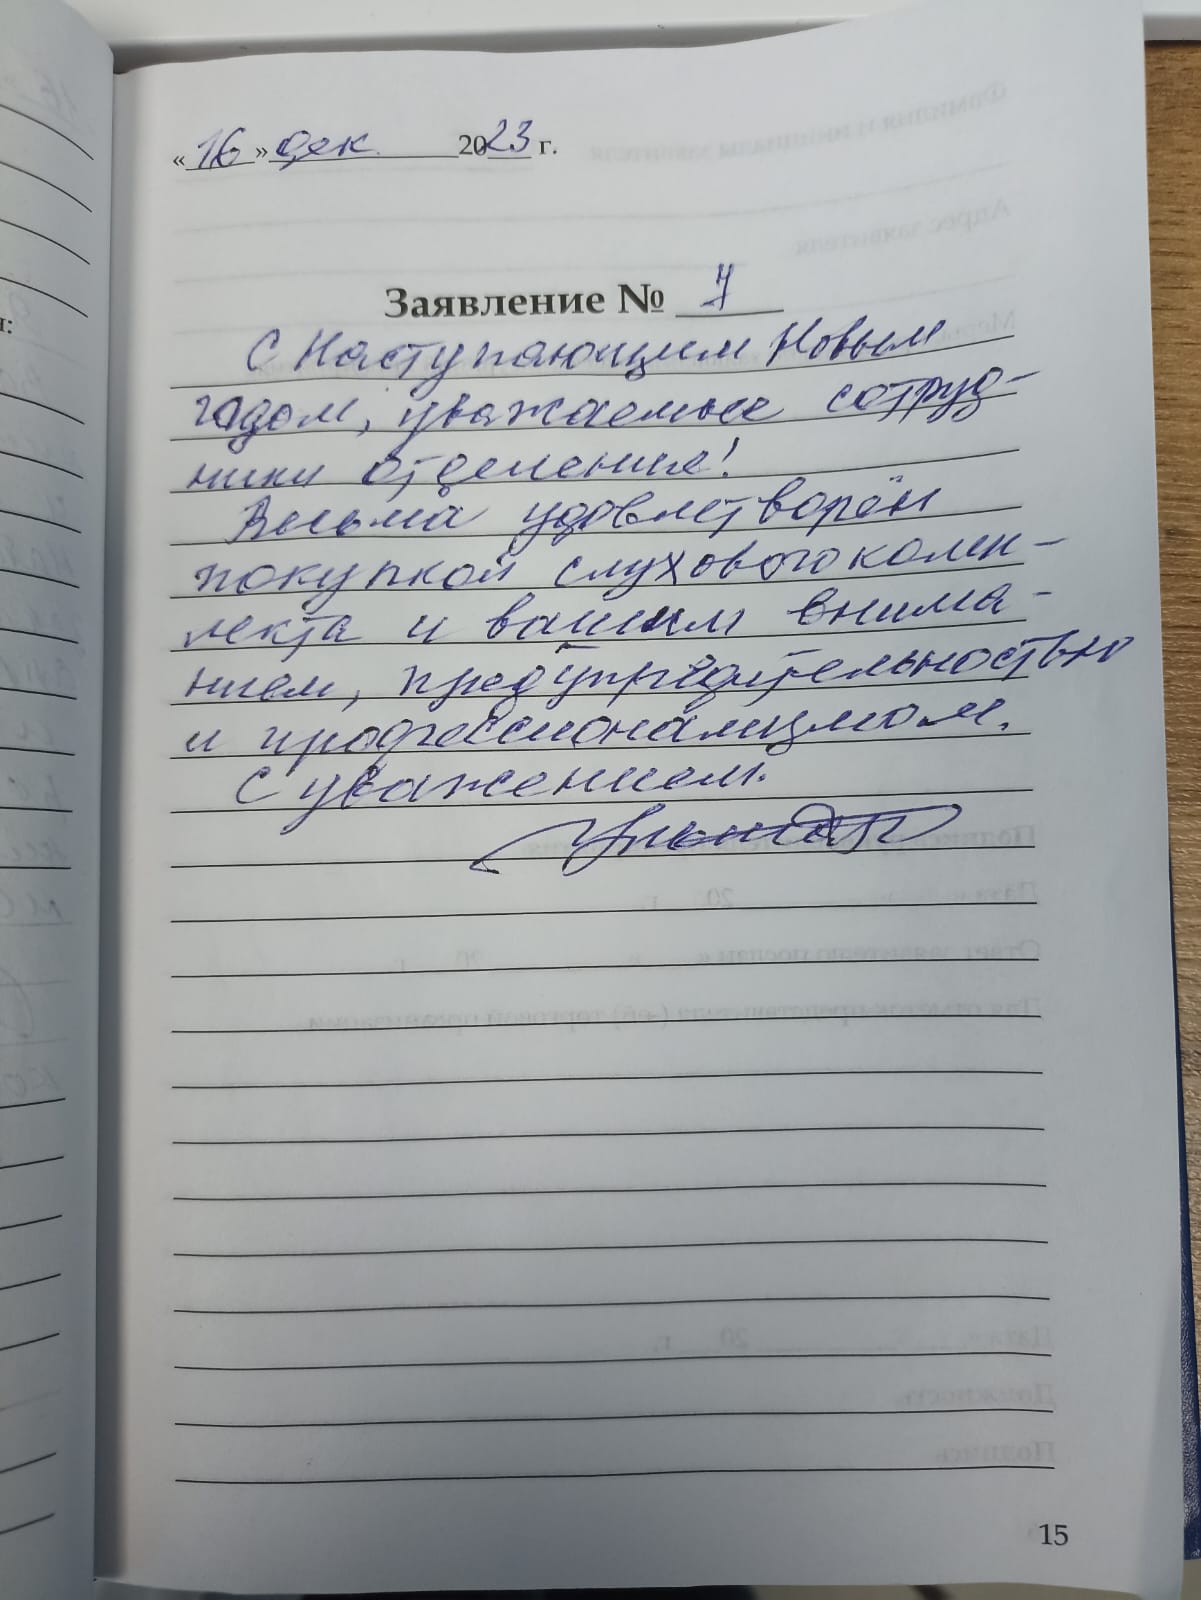 «16» дек. 2023 г.
Заявление № 7
С Наступающим Новым
годом, уважаемые сотруд-
ники отделения!
Весьма удовлетворён
покупкой слухового комп-
лекта и вашим внима-
нием, предупредительностью
и профессионализмом.
С уважением.
15